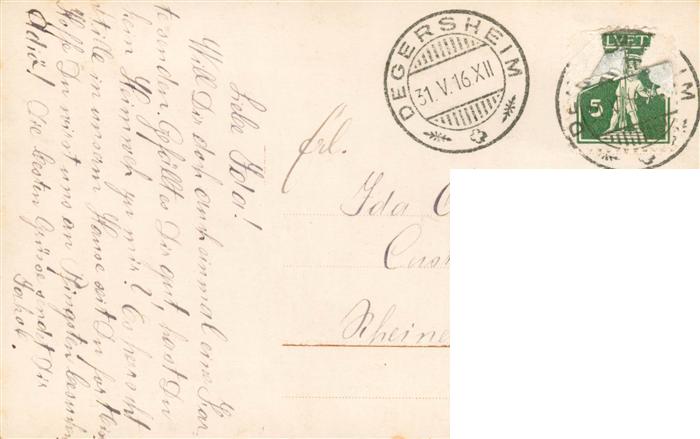 Liebe Ida!
Will Dir doch auch einmal eine Kar-
te senden. Gefällt es Dir gut, hast Du
kein Heimweh zu mir? Es herrscht
stille in unserm Hause seit Du fort bist
Hoffe Du wirst uns an Pfingsten besuchen
Adiö! Die besten Grüsse sendet Dir
Jakob.
DEGERSHEIM
31.V.16.XII
HELVETIA
5
Frl.
Ida
Rheine